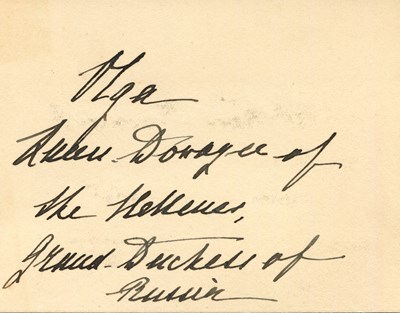 Olga
Queen Dowager of
the Hellenes,
Grand-Duchess of
Russia